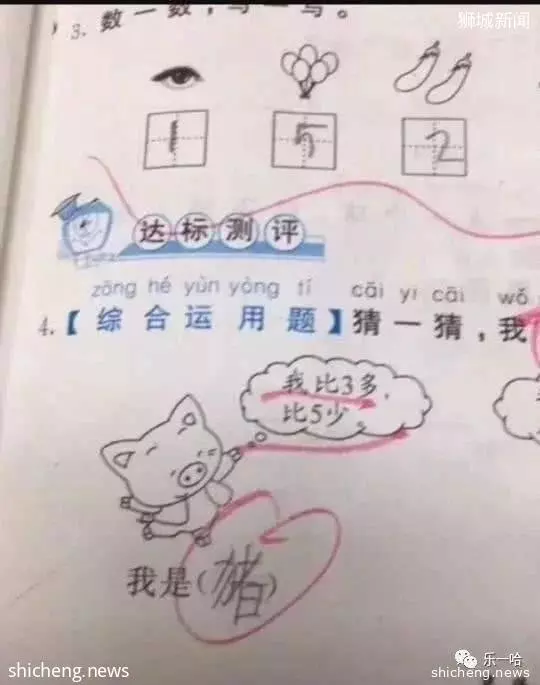 狮城新闻
3. 数一数，写一写。
1 5 2
达标测评
zōng hé yùn yòng tí cāi yi cāi wǒ
4.【综合运用题】猜一猜，我
我比3多，
比5少。
我是(猪)
乐一哈
shicheng.news
shicheng.news